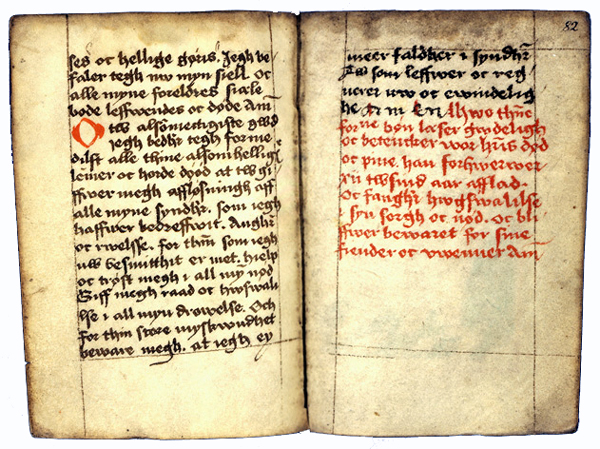 ses oc hellige gøris. Jegh be
faler tegh nw myn siell. Oc
alle myne foreldres siæle
bode leffwendes oc døde Am̄
O tw alsomectigiste gwd
jegh bedh̄r tegh for me
dilst alle thine alsom helligs
lemer oc horde død at tw gi
ffwer megh afføsningh aff
alle myne syndh̄r. som iegh
haffwer bedreffwit. Angh̄r
oc rwelse. for them̄ som iegh
uw besmitthit er met. hielp
oc trøst megh i all my̅ nød
Giff megh raad oc hwswali
lse i all myn drøwelse. Och
for thin store myskwndhet
beware megh. at iegh ey
82
meer faldher i syndh̄r
Tw som leffwer oc reg
nerer uw oc ewindelig
he Am En Hwo thn̄e
forn̄e bøn læser gwdeligh
oc betencker wor h̄ris død
oc pine. han forhwerwer
xij twsind aar afflad.
Oc fangh̄r hwgswalilse
i syn sorgh oc nød. Oc bli
ffwer bewaret for sine
fiender oc vwenner Am̄